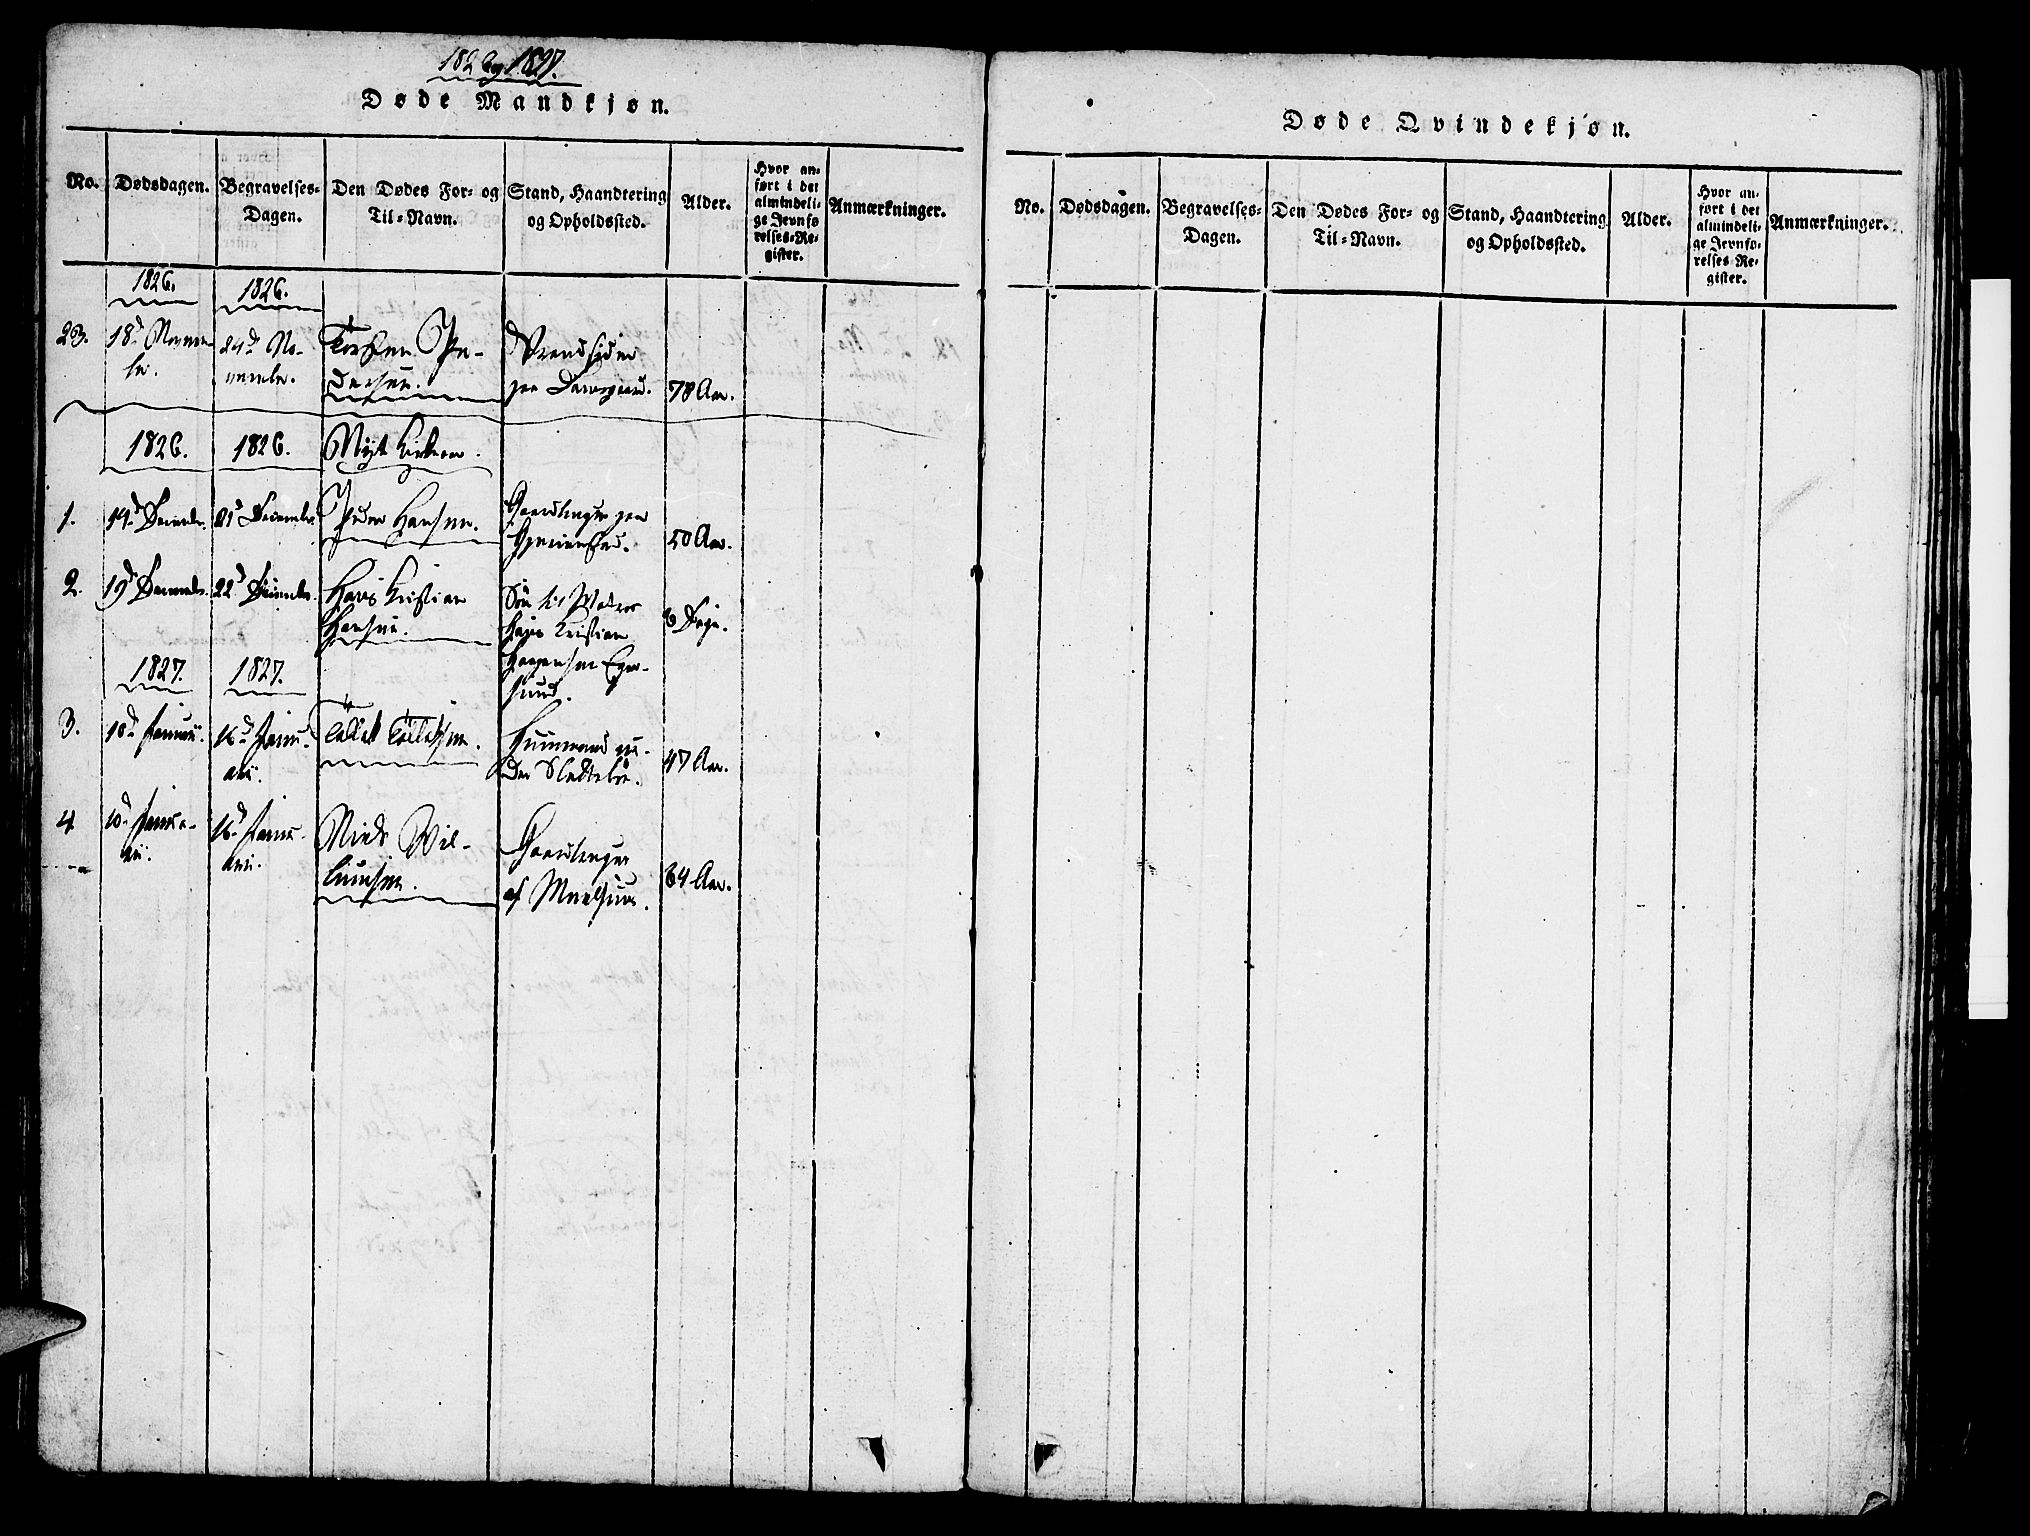 1826 og 1827.
Døde Mandkjøn.
No.
Dødsdagen.
Begravelses-
Dagen.
Den Dødes For- og
Til-Navn.
Stand, Haandtering
og Opholdssted.
Alder.
Hvor an-
ført i det
almindeli-
ge Jevnfø
relses-Re-
gister.
Anmærkninger.
1826.
1826.
23.
18d Novem-
br.
24d No-
vembr.
Torsten Pe-
dersen.
paa
78 Aar.
1826.
1826.
Nyt Kirkeaar.
1.
14d Decembr.
21d Decembr.
Peder Hansen.
Gaardbruger paa
50 Aar.
2.
19d Decembr.
22d Decembr.
Hans Kristian
Hansen.
Søn til Matros
Hans Kristian
Eger-
sund.
8 Dage.
1827.
1827.
3.
10d Januarii.
16d Janu-
arii.
Tollak Tollaksen.
Huusmand un-
der Slettebøe.
47 Aar.
4
10d Janu-
arii.
16d Janu-
arii.
Niels Wil-
lumsen.
Gaardbruger
af
64 Aar.
Døde Qvindekjøn.
No.
Dødsdagen.
Begravelses-
Dagen.
Den Dødes For- og
Til-Navn.
Stand, Haandtering
og Opholdssted.
Alder.
Hvor an-
ført i det
almindeli-
ge Jevnfø-
relses Re-
gister.
Anmærkninger.